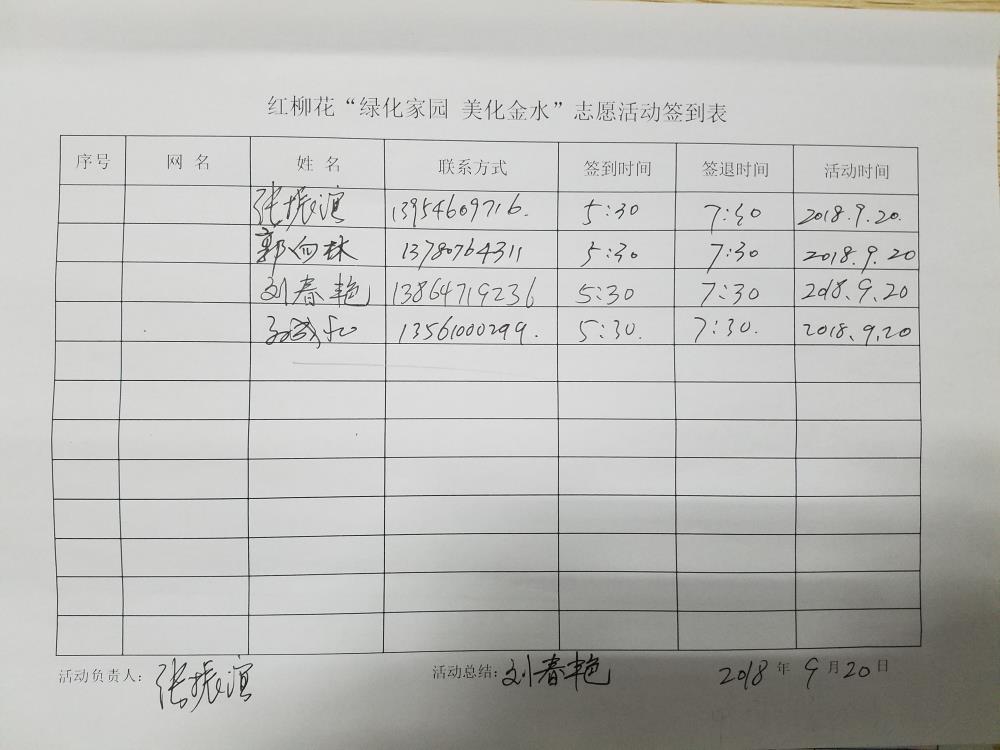 红柳花“绿化家园 美化金水”志愿活动签到表
序号 网 名 姓 名 联系方式 签到时间 签退时间 活动时间
张振谊 13954609716. 5:30 7:30 2018.9.20.
郭向林 13780764311 5:30 7:30 2018.9.20
刘春艳 13864719236 5:30 7:30 2018.9.20
13561000299. 5:30. 7:30. 2018.9.20
活动负责人: 张振谊 活动总结: 刘春艳 2018 年 9 月 20 日